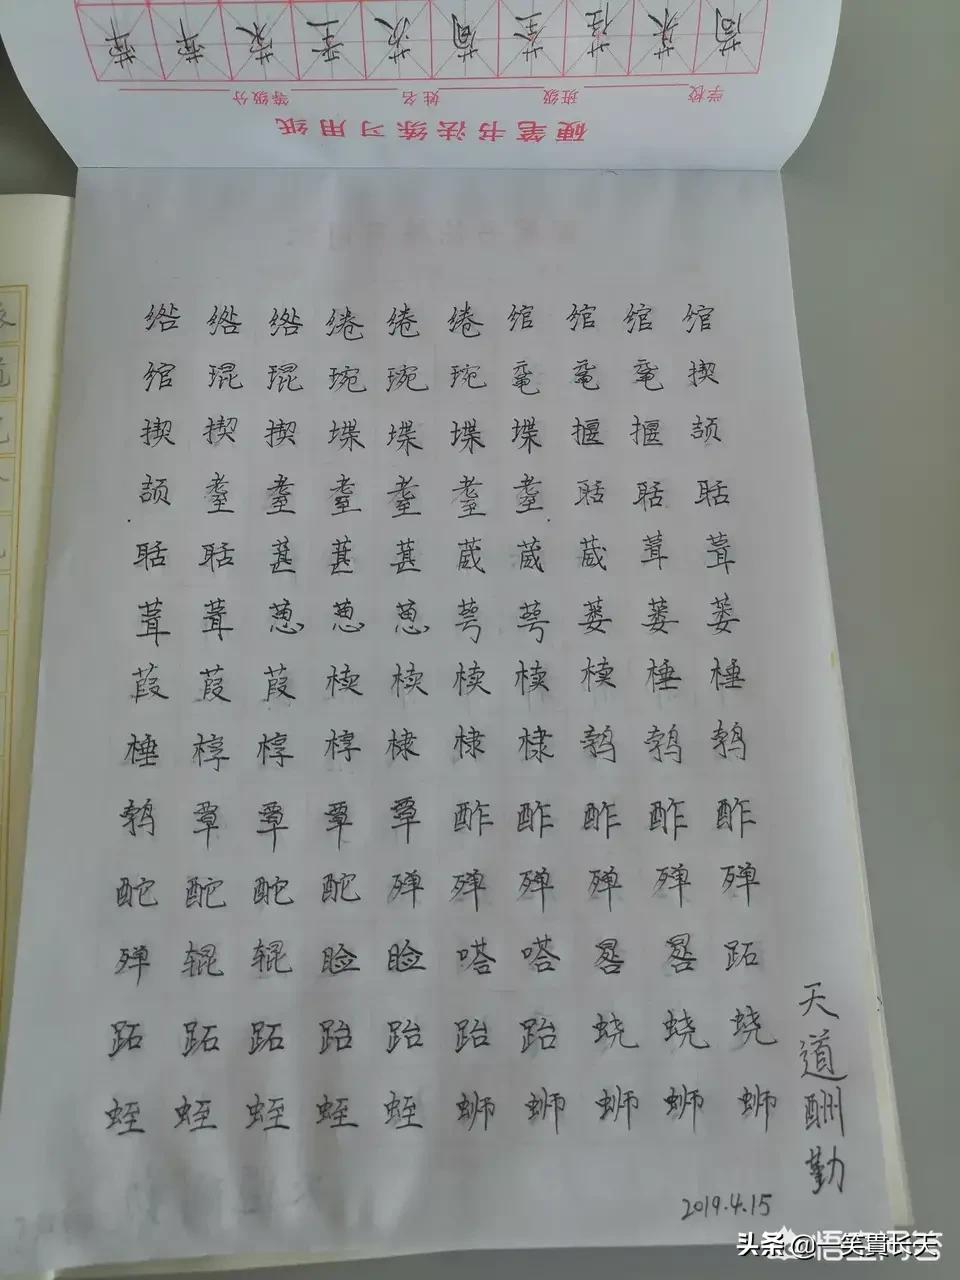 硬笔书法练习用纸
学校 班级 姓名 等级分
绺 绺 绺 绻 绻 绻 绾 绾 绾 绾
绾 琨 琨 琬 琬 琬 鼋 鼋 鼋 揳
揳 揳 揳 堞 堞 堞 堞 揠 揠 颉
颉 耋 耋 耋 耋 耋 耋 聒 聒 聒
聒 聒 葚 葚 葚 葳 葳 葳 葺 葺
葺 葺 葱 葱 葱 萼 萼 蒌 蒌 蒌
葭 葭 葭 椟 椟 椟 椟 椟 棰 棰
棰 椁 椁 椁 棣 棣 棣 鹁 鹁 鹁
鹁 覃 覃 覃 覃 酢 酢 酢 酢 酢
酡 酡 酡 酡 殚 殚 殚 殚 殚 殚
殚 辊 辊 睑 睑 嗒 嗒 晷 晷 跖
跖 跖 跖 跆 跆 跆 跆 蛲 蛲 蛲
蛭 蛭 蛭 蛭 蛭 蛳 蛳 蛳 蛳 蛳
天道酬勤
2019.4.15
悟空问答
头条 @一笑貫长天